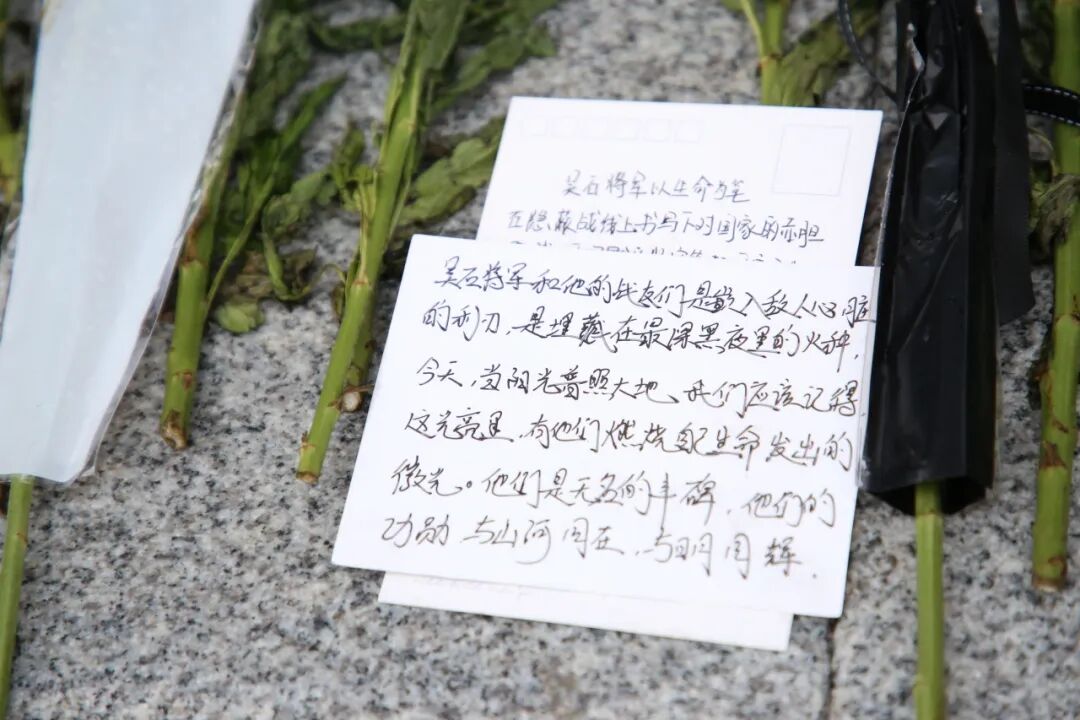 吴石将军以生命为笔
在隐蔽战线上书写下对国家的赤胆
吴石将军和他的战友们是嵌入敌人心脏
的利刃，是埋藏在最深黑夜里的火种，
今天，当阳光普照大地、我们应该记得，
这光亮里，有他们燃烧自己生命发出的
微光。他们是无名的丰碑，他们的
功勋与山河同在，与日月同辉．